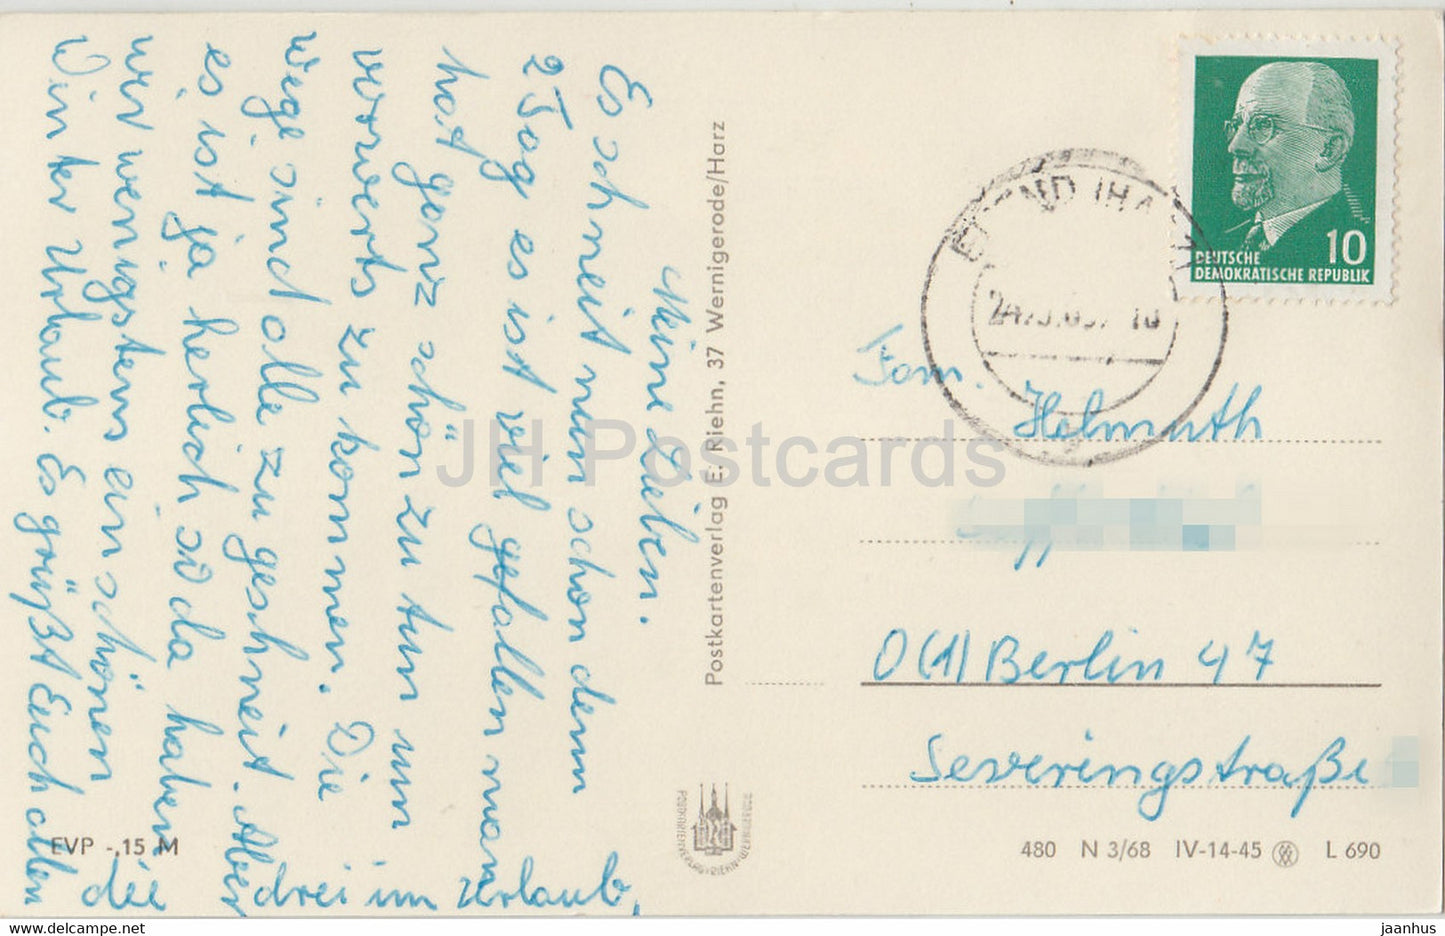 Meine Lieben.
Es schneit nun schon denn
2 Tag es ist viel gefallen man
hat ganz schön zu tun um
vorwerts zu kommen. Die
Wege sind alle zu geschneit. Aber
es ist ja herlich so da haben
wir wenigstens ein schönen
Winter Urlaub. Es grüßt Euch allen
die drei im Urlaub.
EVP -,15 M
Postkartenverlag E. Riehn, 37 Wernigerode/Harz
JH Postcards
DEUTSCHE 10
DEMOKRATISCHE REPUBLIK
Fam.
Helmuth
0(1)Berlin 47
Severingstraße
480 N 3/68 IV-14-45 L 690
www.hippostcard.com
jaanhus